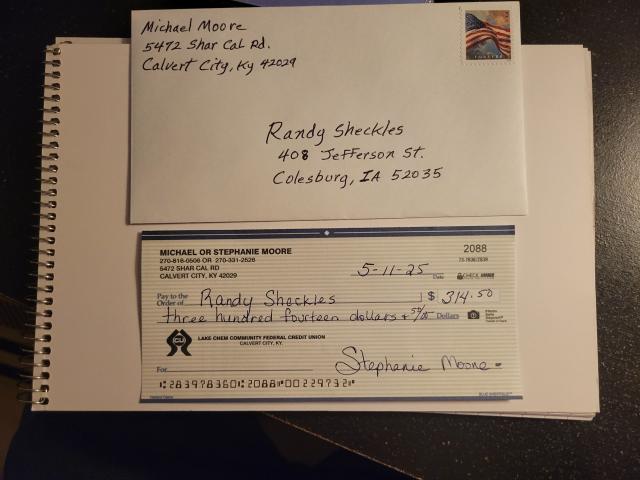 Michael Moore
5472 Shar Cal Rd.
Calvert City, Ky 42029
FOREVER
Randy Sheckles
408 Jefferson St.
Colesburg, IA 52035
MICHAEL OR STEPHANIE MOORE
270-816-0506 OR 270-331-2526
5472 SHAR CAL RD
CALVERT CITY, KY 42029
2088
5-11-25 Date
Pay to the Order of Randy Sheckles $ 314.50
three hundred fourteen dollars & 50/00 Dollars
CU
LAKE CHEM COMMUNITY FEDERAL CREDIT UNION
CALVERT CITY, KY.
For Stephanie Moore
283978360 2088 00229732